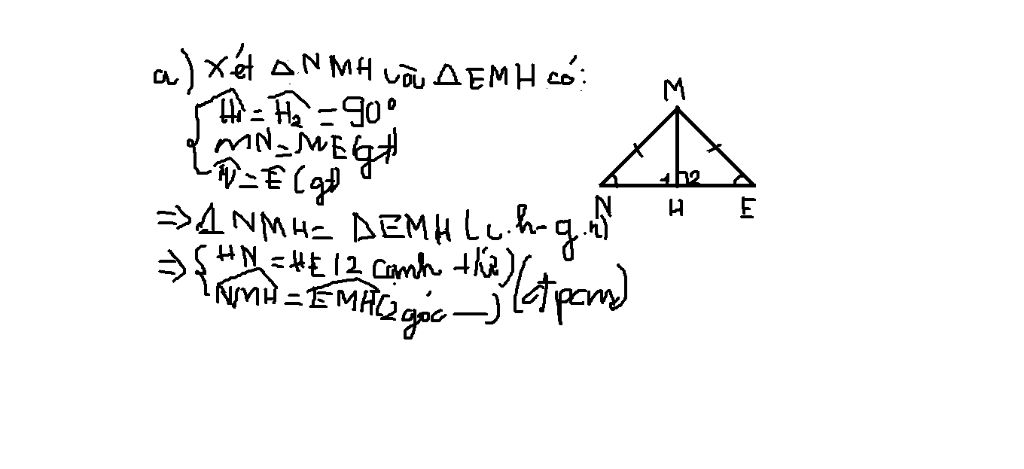 a) Xét Δ NMH và Δ EMH có:
Ĥ₁ = Ĥ₂ = 90°
MN = ME (gt)
N̂ = Ê (gt)
=> Δ NMH = Δ EMH (c.h - g.n)
=> { HN = HE (2 cạnh t/ứ)
NMH = EMH (2 góc —) (đpcm)
M
1 2
N H E